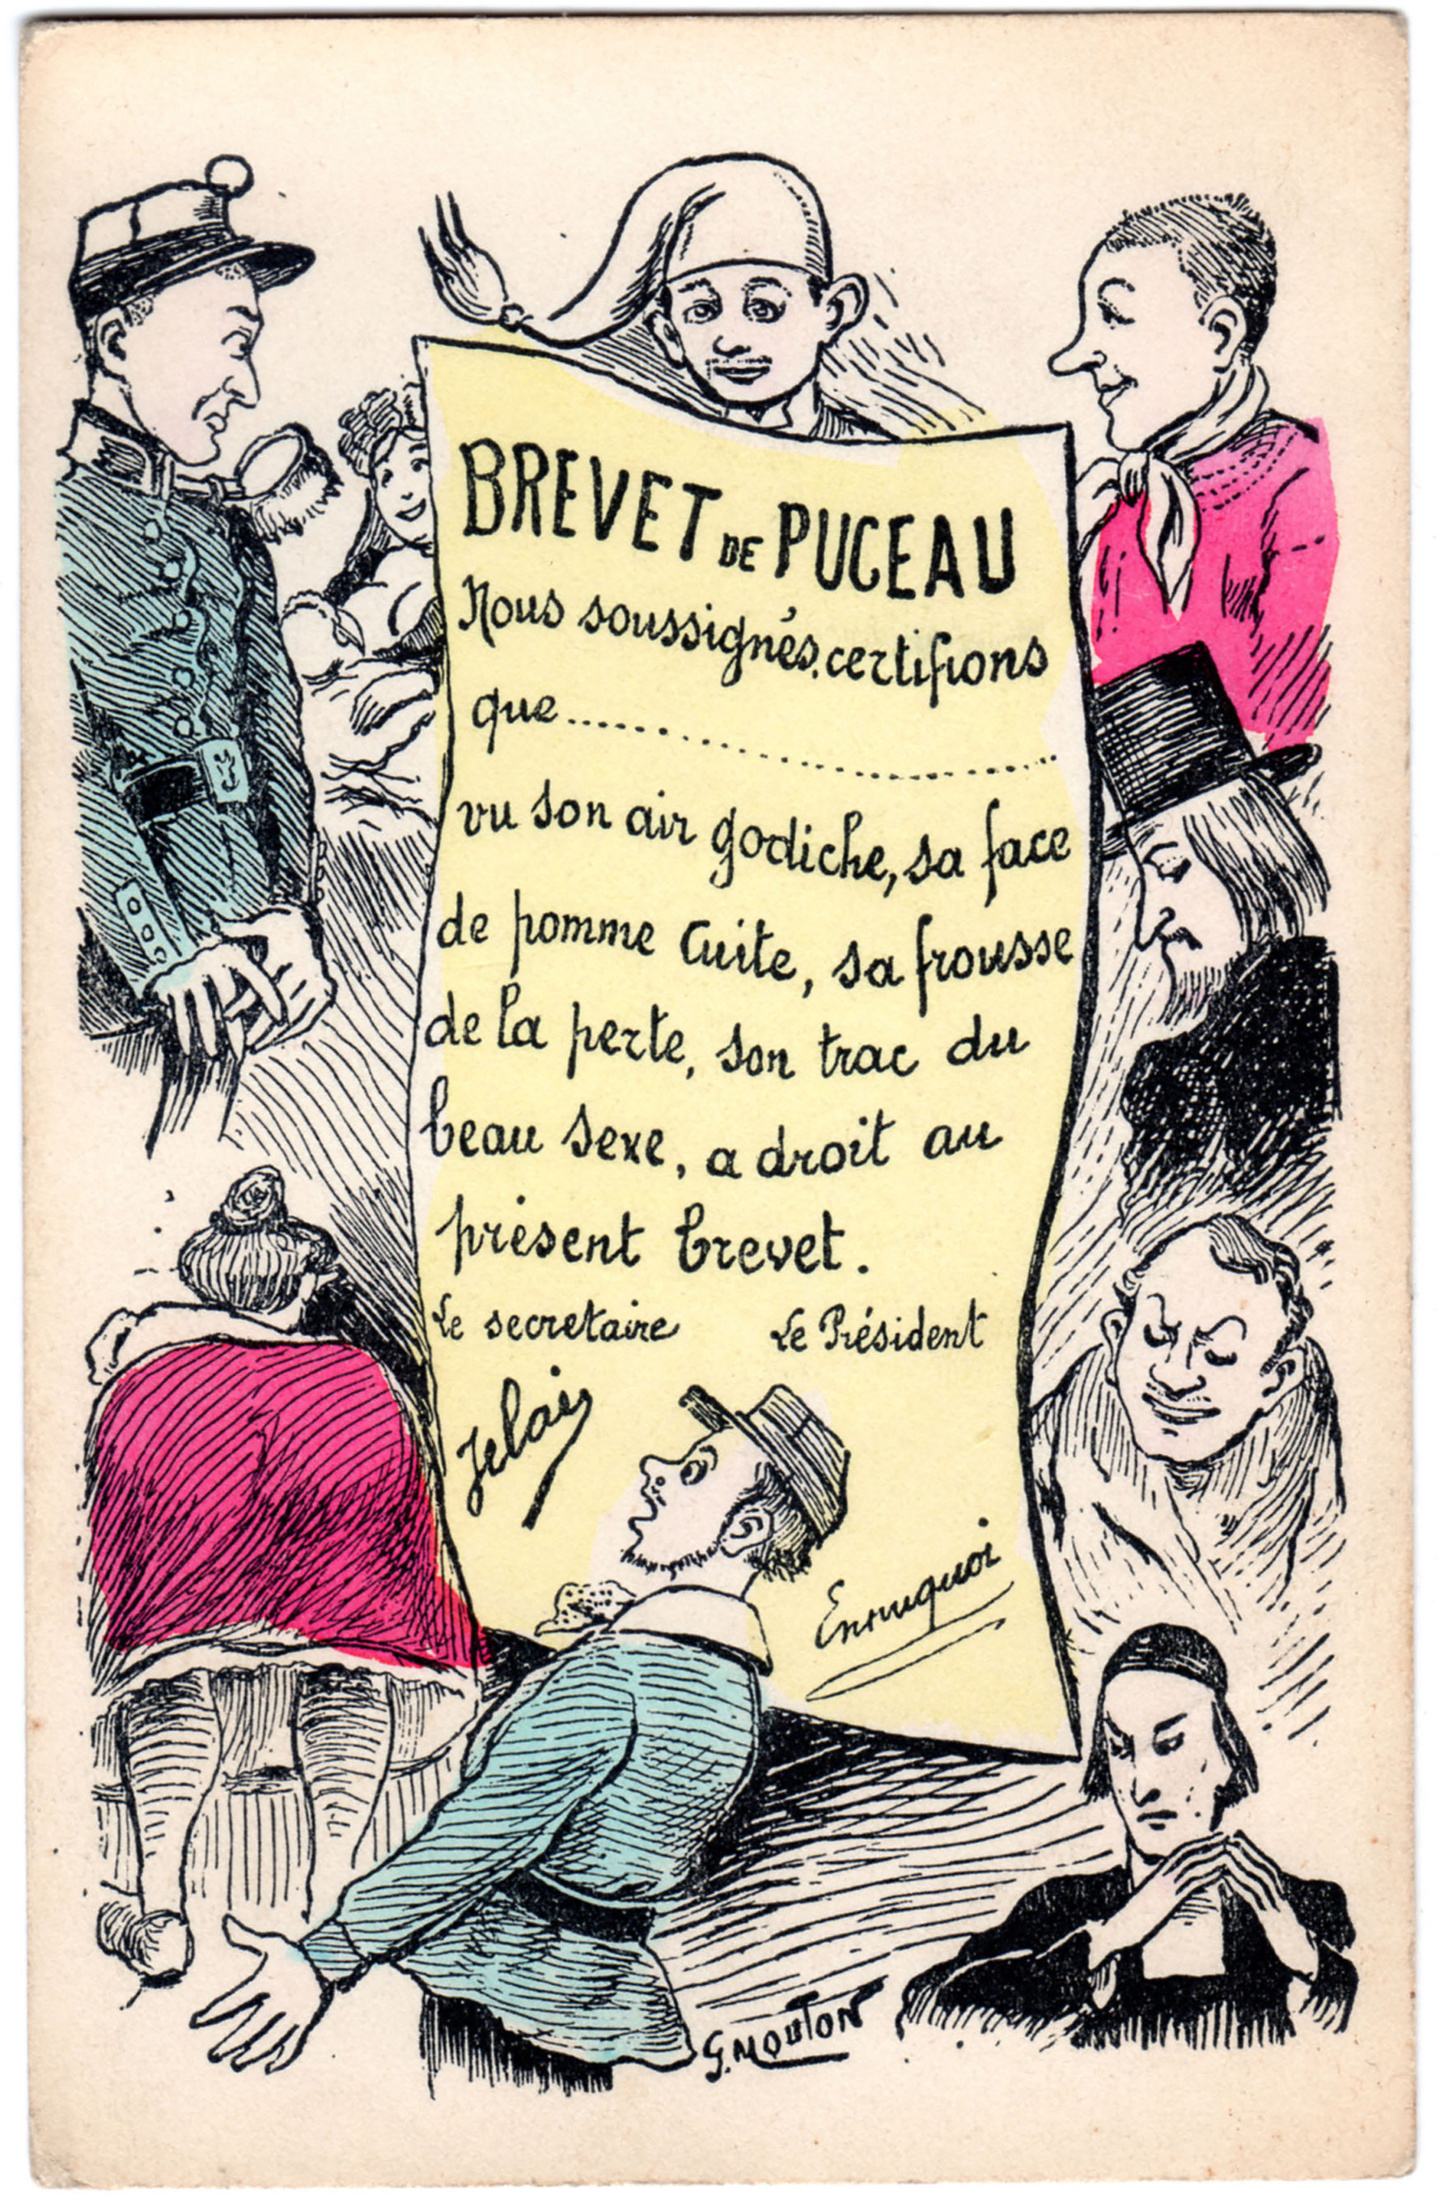 BREVET DE PUCEAU
Nous soussignés, certifions
que....................
vu son air godiche, sa face
de pomme cuite, sa frousse
de la perte, son trac du
beau sexe, a droit au
présent brevet.
Le secretaire Le Président
Jelai
Ennuquoi
G. MOUTON